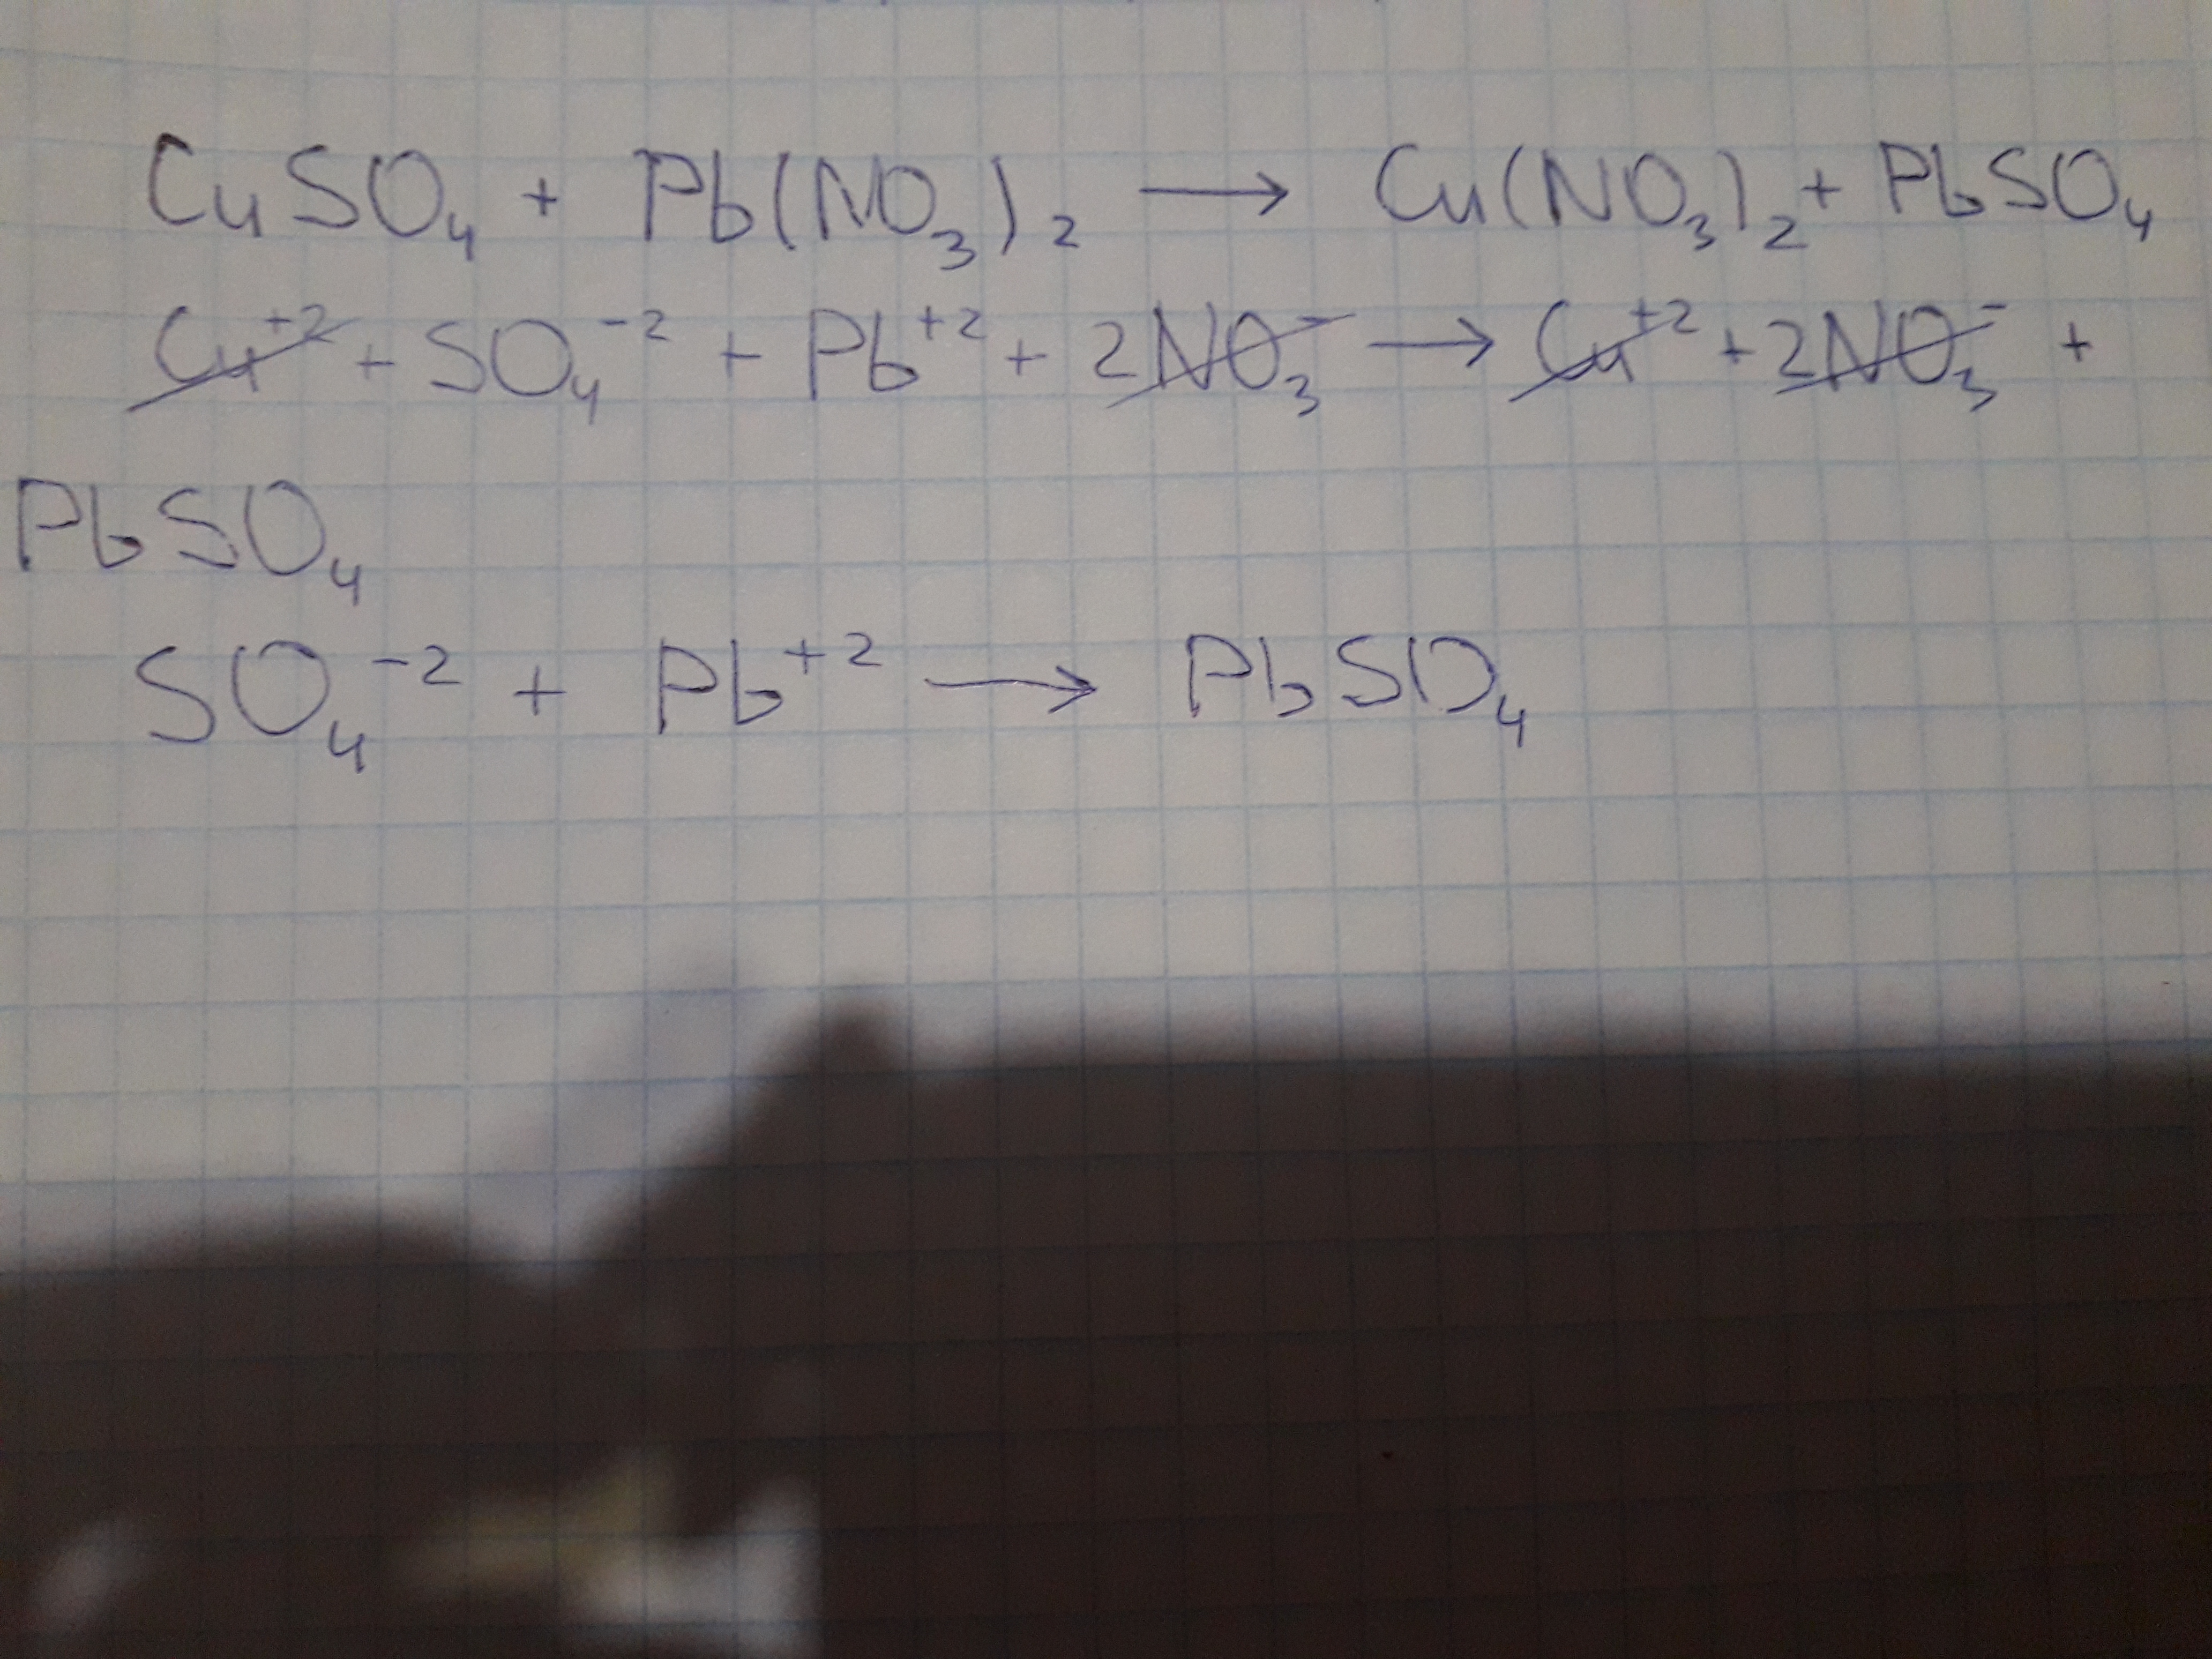 CuSO₄ + Pb(NO₃)₂ → Cu(NO₃)₂ + PbSO₄
Cu⁺² + SO₄⁻² + Pb⁺² + 2NO₃⁻ → Cu⁺² + 2NO₃⁻ +
PbSO₄
SO₄⁻² + Pb⁺² → PbSO₄